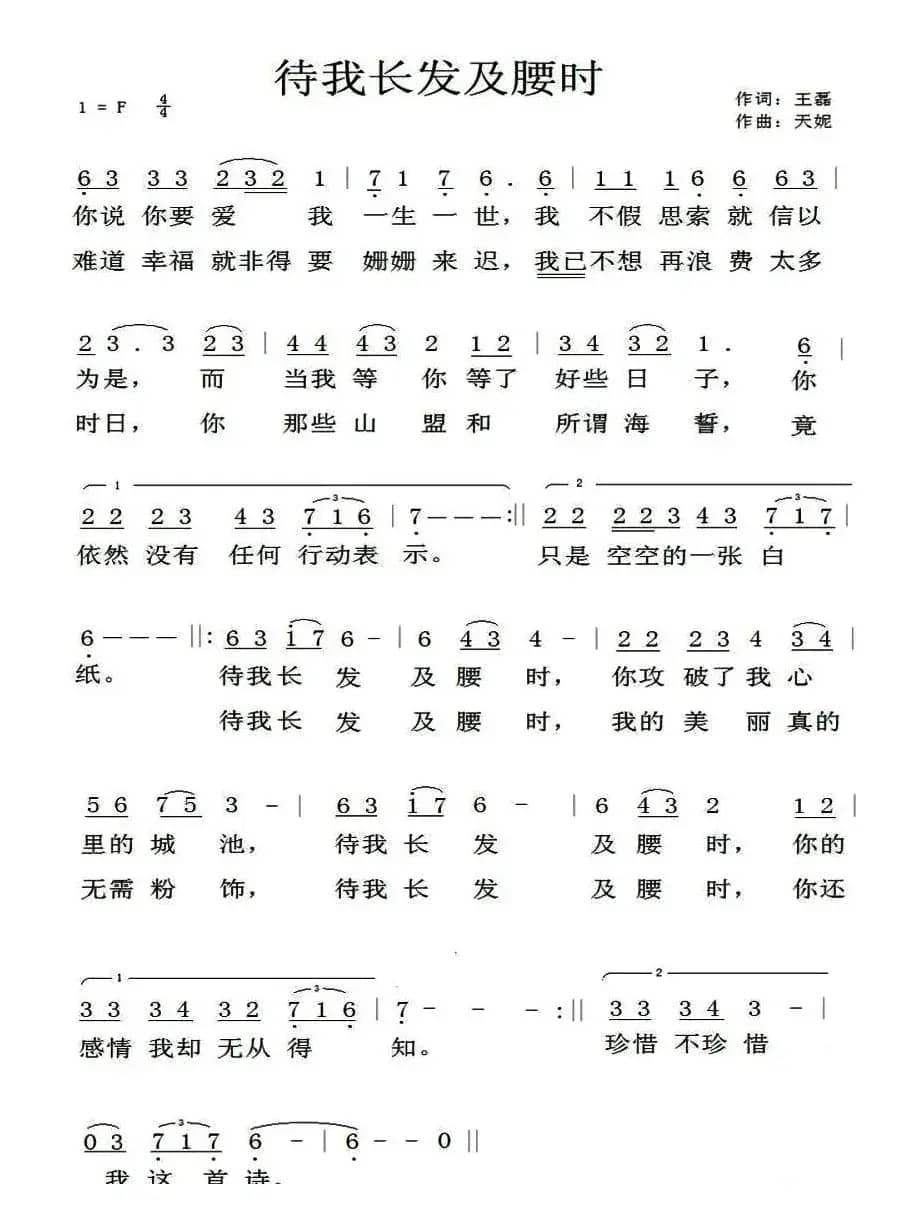 待我长发及腰时
1 = F 4/4
作词：王磊
作曲：天妮
6 3 3 3 2 3 2 1 | 7 1 7 6 . 6 | 1 1 1 6 6 6 3 |
你说 你要 爱 我 一生 一 世，我 不假 思索 就 信以
难道 幸福 就非得 要 姗姗 来 迟，我已不想 再浪 费 太多
2 3 . 3 2 3 | 4 4 4 3 2 1 2 | 3 4 3 2 1 . 6 |
为是， 而 当我 等 你 等了 好些 日 子， 你
时日， 你 那些 山 盟 和 所谓 海 誓， 竟
1 2
2 2 2 3 4 3 7 1 6 | 7 — — — :|| 2 2 2 2 3 4 3 7 1 7 |
3 3
依然 没有 任何 行动表 示。 只是 空空的一张 白
6 — — — ||: 6 3 1 7 6 - | 6 4 3 4 - | 2 2 2 3 4 3 4 |
纸。 待我 长 发 及 腰 时， 你攻 破了 我 心
待我 长 发 及 腰 时， 我的 美 丽 真的
5 6 7 5 3 - | 6 3 1 7 6 - | 6 4 3 2 1 2 |
里的 城 池， 待我 长 发 及 腰 时， 你的
无需 粉 饰， 待我 长 发 及 腰 时， 你还
1 2
3 3 3 4 3 2 7 1 6 | 7 - - - :|| 3 3 3 4 3 - |
3
感情 我却 无从 得 知。 珍惜 不珍 惜
0 3 7 1 7 6 - | 6 - 0 ||
3
我 这 首 诗。